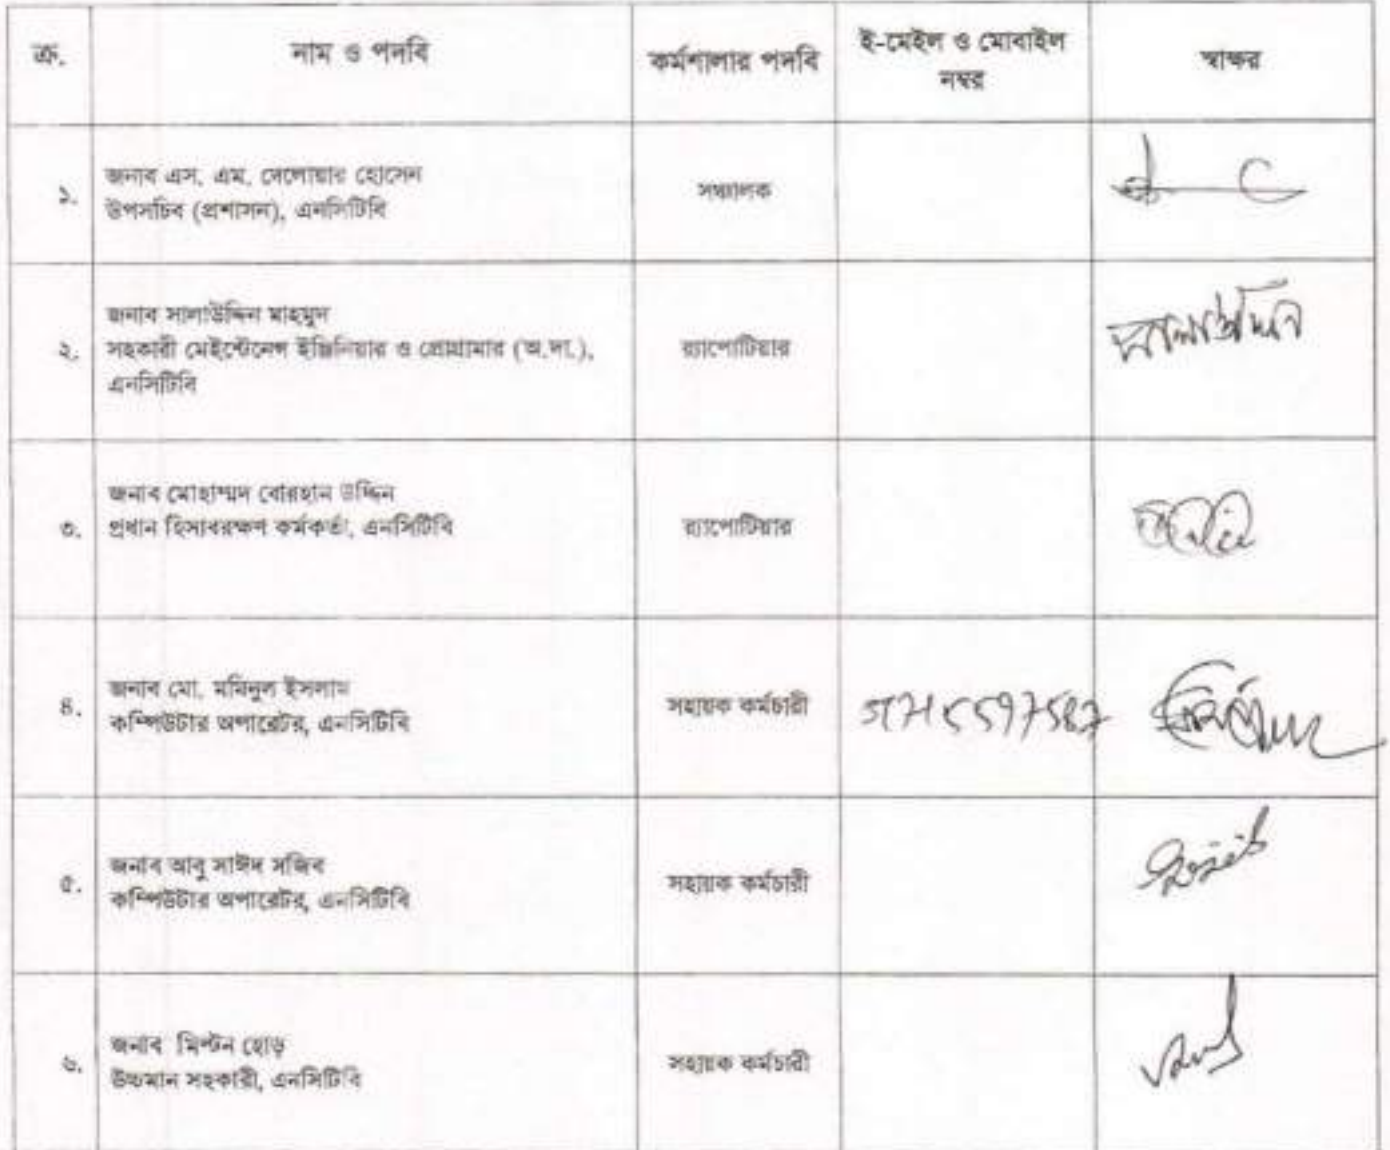 ক্র.
নাম ও পদবি
কর্মশালার পদবি
ই-মেইল ও মোবাইল
নম্বর
স্বাক্ষর
১.
জনাব এস. এম. দেলোয়ার হোসেন
উপসচিব (প্রশাসন), এনসিটিবি
সঞ্চালক
২.
জনাব সালাউদ্দিন মাহমুদ
সহকারী মেইন্টেনেন্স ইঞ্জিনিয়ার ও প্রোগ্রামার (অ.দা.),
এনসিটিবি
র‍্যাপোটিয়ার
৩.
জনাব মোহাম্মদ বোরহান উদ্দিন
প্রধান হিসাবরক্ষণ কর্মকর্তা, এনসিটিবি
র‍্যাপোটিয়ার
৪.
জনাব মো. মমিনুল ইসলাম
কম্পিউটার অপারেটর, এনসিটিবি
সহায়ক কর্মচারী
৫.
জনাব আবু সাঈদ সজিব
কম্পিউটার অপারেটর, এনসিটিবি
সহায়ক কর্মচারী
৬.
জনাব মিল্টন হোড়
উচ্চমান সহকারী, এনসিটিবি
সহায়ক কর্মচারী